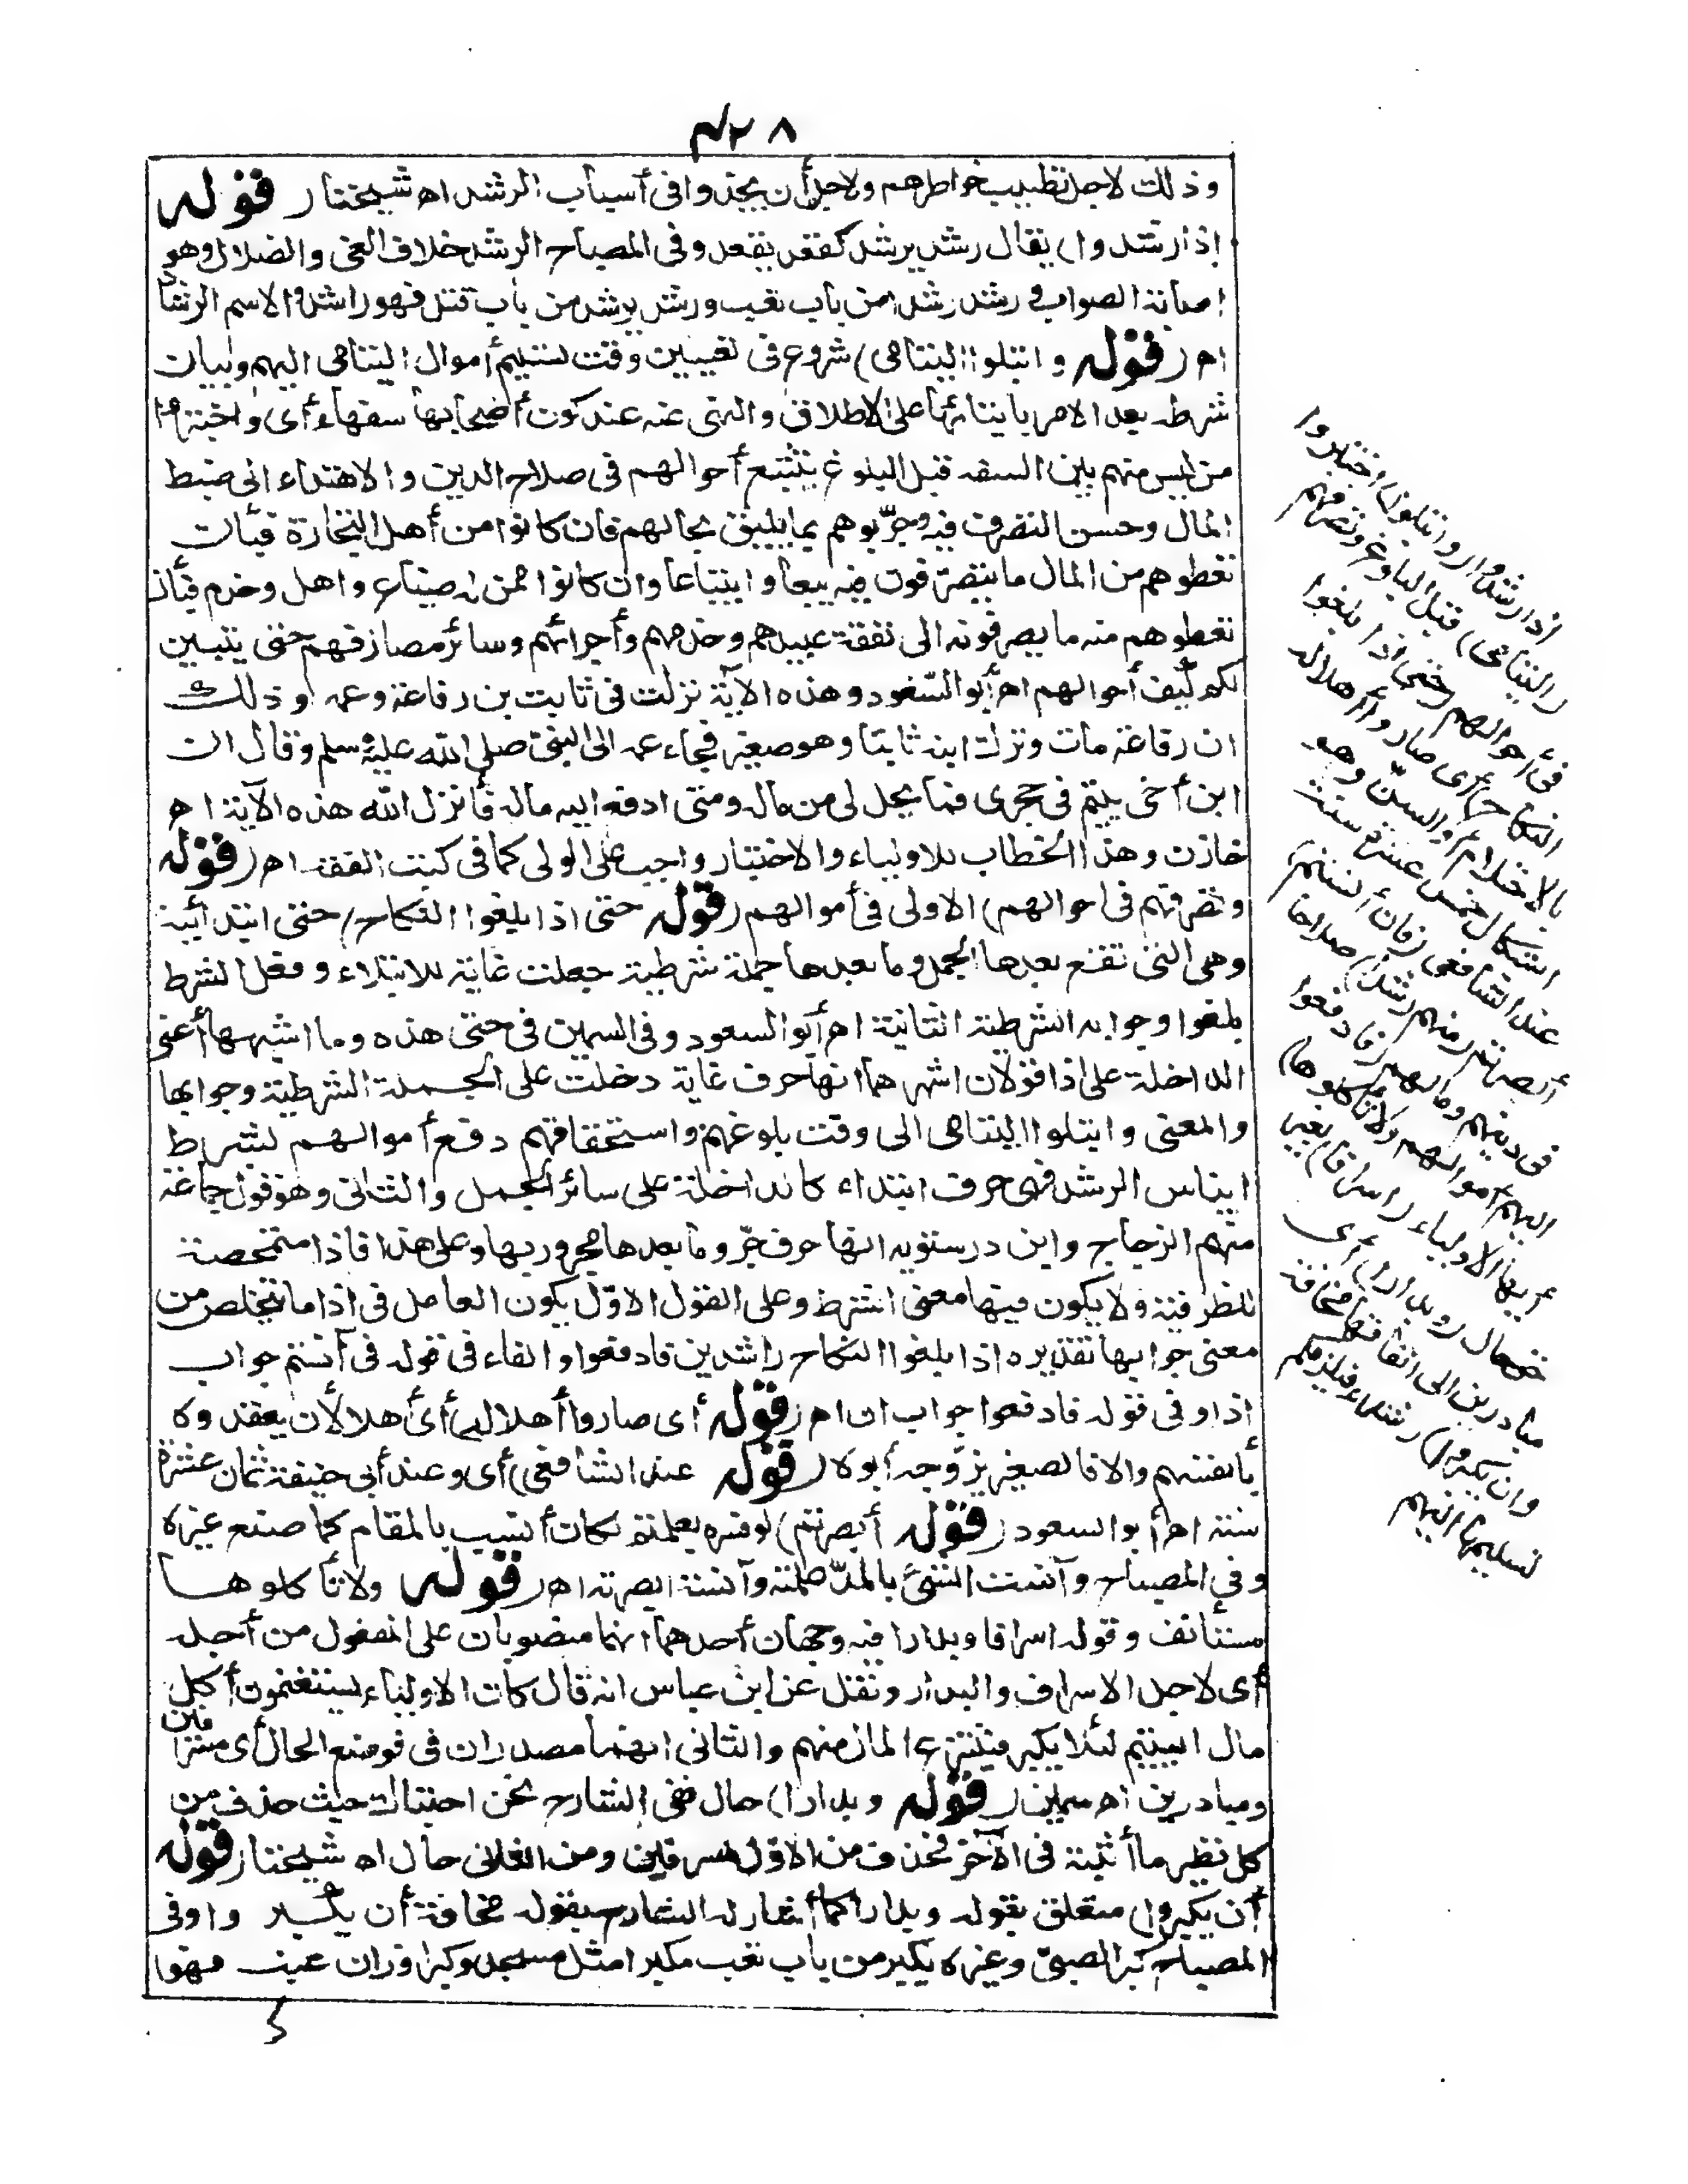 ٤٢٨
وذلك لاجل تطييب خواطرهم ولاجل أن يجدوا فى أسباب الرشد اه شيخنا (قوله
إذا رشدوا) يقال رشد يرشد كقعد يقعد وفى المصباح الرشد خلاف الغى والضلال وهو
اصابة الصواب ورشد رشدا من باب تعب ورشد يرشد من باب قتل فهو راشد والاسم الرشاد
اه (قوله وابتلوا اليتامى) شروع فى تعيين وقت تسليم أموال اليتامى اليهم وبيان
شرطه بعد الامر بايتائها على الاطلاق والنهى عنه عند كون أصحابها سفهاء أى واختبروا
من ليس منهم بين السفه قبل البلوغ بتتبع أحوالهم فى صلاح الدين والاهتداء الى ضبط
المال وحسن التصرف فيه وجرّبوهم بما يليق بحالهم فان كانوا من أهل التجارة فبأن
تعطوهم من المال ما يتصرّفون فيه بيعا وابتياعا وان كانوا ممن له ضياع واهل وخدم فبأن
تعطوهم منه ما يصرفونه الى نفقة عبيدهم وخدمهم وأجرائهم وسائر مصارفهم حتى يتبين
لكم كيف أحوالهم اه أبو السعود وهذه الآية نزلت فى ثابت بن رفاعة وعمه وذلك
ان رفاعة مات وترك ابنه ثابتا وهو صغير فجاء عمه الى النبى صلى الله عليه وسلم وقال ان
ابن أخى يتيم فى حجرى فما يحل لى من ماله ومتى ادفع اليه ماله فأنزل الله هذه الآية اه
خازن وهذا الخطاب للاولياء والاختبار واجب على الولى كما فى كتب الفقه اه (قوله
وتصرفهم فى احوالهم) الاولى فى أموالهم (قوله حتى اذا بلغوا النكاح) حتى ابتدائية
وهى التى تقع بعدها الجمل وما بعدها جملة شرطية جعلت غاية للابتلاء وفعل الشرط
بلغوا وجوابه الشرطية الثانية اه أبو السعود وفى السمين فى حتى هذه وما اشبهها أعنى
الداخلة على اذا قولان اشهرهما انها حرف غاية دخلت على الجملة الشرطية وجوابها
والمعنى وابتلوا اليتامى الى وقت بلوغهم واستحقاقهم دفع أموالهم بشرط
ايناس الرشد فهى حرف ابتداء كالداخلة على سائر الجمل والثانى وهو قول جماعة
منهم الزجاج وابن درستويه انها حرف جرّ وما بعدها مجرور بها وعلى هذا فاذا متمحضة
للظرفية ولا يكون فيها معنى الشرط وعلى القول الاوّل يكون العامل فى اذا ما يتخلص من
معنى جوابها تقديره اذا بلغوا النكاح راشدين فادفعوا والفاء فى قوله فى آنستم جواب
اذا وفى قوله فادفعوا جواب ان اه (قوله أى صاروا أهلا له) أى أهلا لأن يعقدوه
بأنفسهم والا فالصغير يزوّجه أبوه (قوله عند الشافعى) أى وعند أبى حنيفة ثمان عشرة
سنة اه أبو السعود (قوله أبصرتم) لو فسره بعلمتم لكان أنسب بالمقام كما صنع غيره
وفى المصباح وآنست الشئ بالمدّ علمته وآنسته ابصرته اه (قوله ولا تأكلوها
مستأنف وقوله اسرافا وبدارا فيه وجهان أحدهما انهما منصوبان على المفعول من أجله
أى لاجل الاسراف والبدار ونقل عن ابن عباس انه قال كان الاولياء يستغنمون أكل
مال اليتيم لئلا يكبر فينتزع المال منهم والثانى انهما مصدران فى موضع الحال أى مسرفين
ومبادرين اه سمين (قوله وبدارا) حال ففى الشارح نحن احتباك حيث حذف من
كل نظير ما أثبته فى الآخر فحذف من الاوّل مسرفين ومن الثانى حال اه شيخنا (قوله
أن يكبروا) متعلق بقوله وبدارا كما أشار له الشارح بقوله مخافة أن يكبروا وفى
المصباح كبر الصبىّ وغيره يكبر من باب تعب مكبرا مثل مسجد وكبرا وزان عنب فهو
اذا رشدوا (وابتلوا) اختبروا
(اليتامى) قبل البلوغ وتصرفهم
فى أحوالهم (حتى اذا بلغوا
النكاح) أى صاروا أهلا له
بالاحتلام أو السنّ وهو
استكمال خمس عشرة سنة
عند الشافعى (فان آنستم)
أبصرتم (منهم رشدا) صلاحا
فى دينهم ومالهم (فادفعوا
اليهم أموالهم ولا تأكلوها)
أيها الأولياء (اسرافا) بغير
حق حال (وبدارا) أى
مبادرين الى انفاقها مخافة
(أن يكبروا) رشداء فيلزمكم
تسليمها اليهم